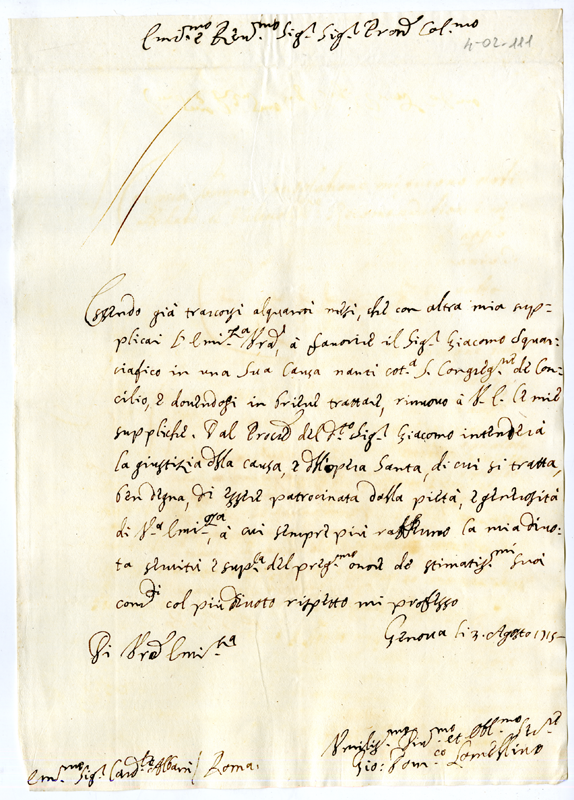 Emin.mo e Reu.mo Sig.r Sig.r Pron Col.mo
4-02-111
Essendo già trascorsi alquanti mesi, che con altra mia sup=
plicai l'Emi.za Vra, à fauorire il Sig.r Giacomo Squar=
ciafico in una sua Causa nanti cot.a S. Congreg.ne del Con=
cilio, e douendosi in breue trattare, rinuouo à V. E. le mie
suppliche. Dal Procu.re del d.to Sig.r Giacomo intenderà
la giustizia della causa, e dell'opera Santa, di cui si tratta,
ben degna, di essere patrocinata dalla pietà, e generosità
di V.a Emi.za, à cui sempre più raffermo la mia diuo=
ta seruitù e del preg.mo onore de stimatis.mi suoi
com.di col più diuoto rispetto mi professo
Di Vra Emi.za
Genoua li 3. Agosto 1715
Diu.mo et Obl.mo Ser.re
Gio: Dom.co Lomellino
Em.mo Sig.r Card.le Albani / Roma.